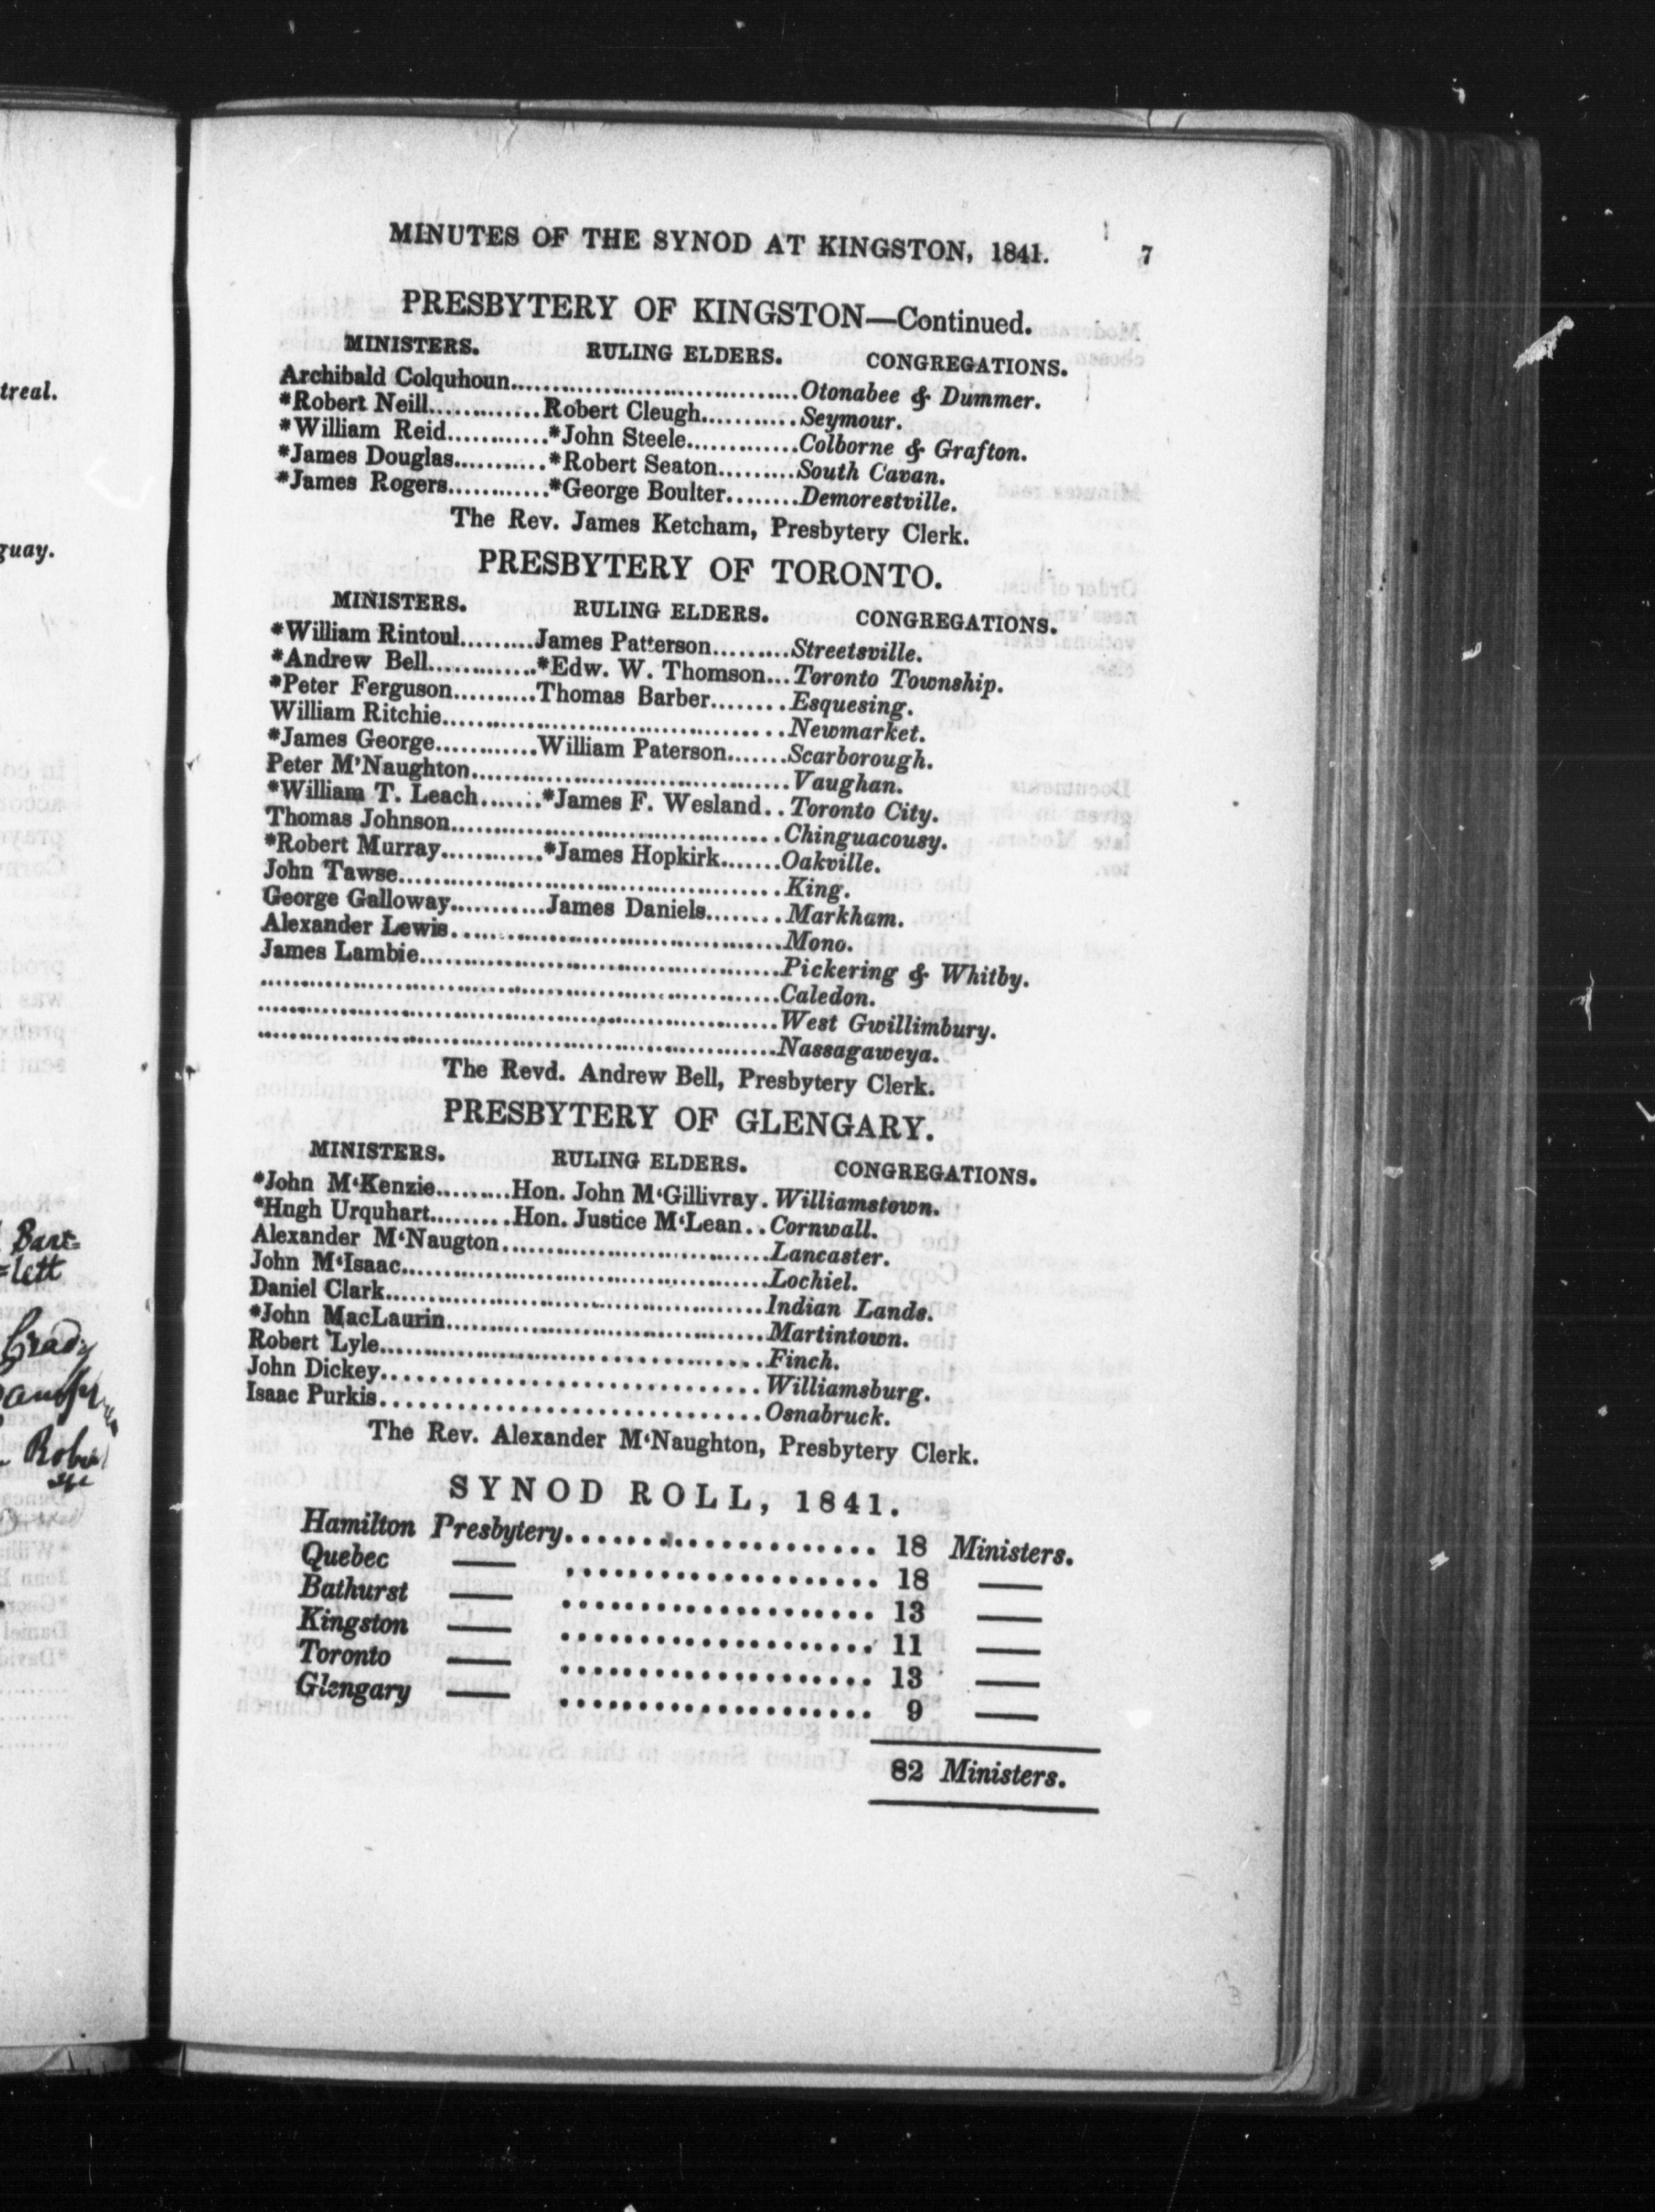 treal.
guay.
Bart=
=lett
Grady
MINUTES OF THE SYNOD AT KINGSTON, 1841. 7
PRESBYTERY OF KINGSTON—Continued.
MINISTERS. RULING ELDERS. CONGREGATIONS.
Archibald Colquhoun........................................Otonabee & Dummer.
*Robert Neill.............Robert Cleugh..........Seymour.
*William Reid............*John Steele.............Colborne & Grafton.
*James Douglas...........*Robert Seaton.........South Cavan.
*James Rogers............*George Boulter........Demorestville.
The Rev. James Ketcham, Presbytery Clerk.
PRESBYTERY OF TORONTO.
MINISTERS. RULING ELDERS. CONGREGATIONS.
*William Rintoul.........James Patterson.........Streetsville.
*Andrew Bell.............*Edw. W. Thomson...Toronto Township.
*Peter Ferguson..........Thomas Barber........Esquesing.
William Ritchie........................................Newmarket.
*James George............William Paterson.......Scarborough.
Peter M'Naughton........................................Vaughan.
*William T. Leach.......*James F. Wesland..Toronto City.
Thomas Johnson........................................Chinguacousy.
*Robert Murray............*James Hopkirk.......Oakville.
John Tawse........................................King.
George Galloway...........James Daniels........Markham.
Alexander Lewis........................................Mono.
James Lambie........................................Pickering & Whitby.
........................................Caledon.
........................................West Gwillimbury.
........................................Nassagaweya.
The Revd. Andrew Bell, Presbytery Clerk.
PRESBYTERY OF GLENGARY.
MINISTERS. RULING ELDERS. CONGREGATIONS.
*John M‘Kenzie.........Hon. John M‘Gillivray.Williamstown.
*Hugh Urquhart.........Hon. Justice M‘Lean..Cornwall.
Alexander M‘Naugton..............................Lancaster.
John M‘Isaac........................................Lochiel.
Daniel Clark........................................Indian Lands.
*John MacLaurin........................................Martintown.
Robert Lyle........................................Finch.
John Dickey........................................Williamsburg.
Isaac Purkis........................................Osnabruck.
The Rev. Alexander M‘Naughton, Presbytery Clerk.
SYNOD ROLL, 1841.
Hamilton Presbytery.................... 18 Ministers.
Quebec —— .................... 18 ——
Bathurst —— .................... 13 ——
Kingston —— .................... 11 ——
Toronto —— .................... 13 ——
Glengary —— .................... 9 ——
82 Ministers.